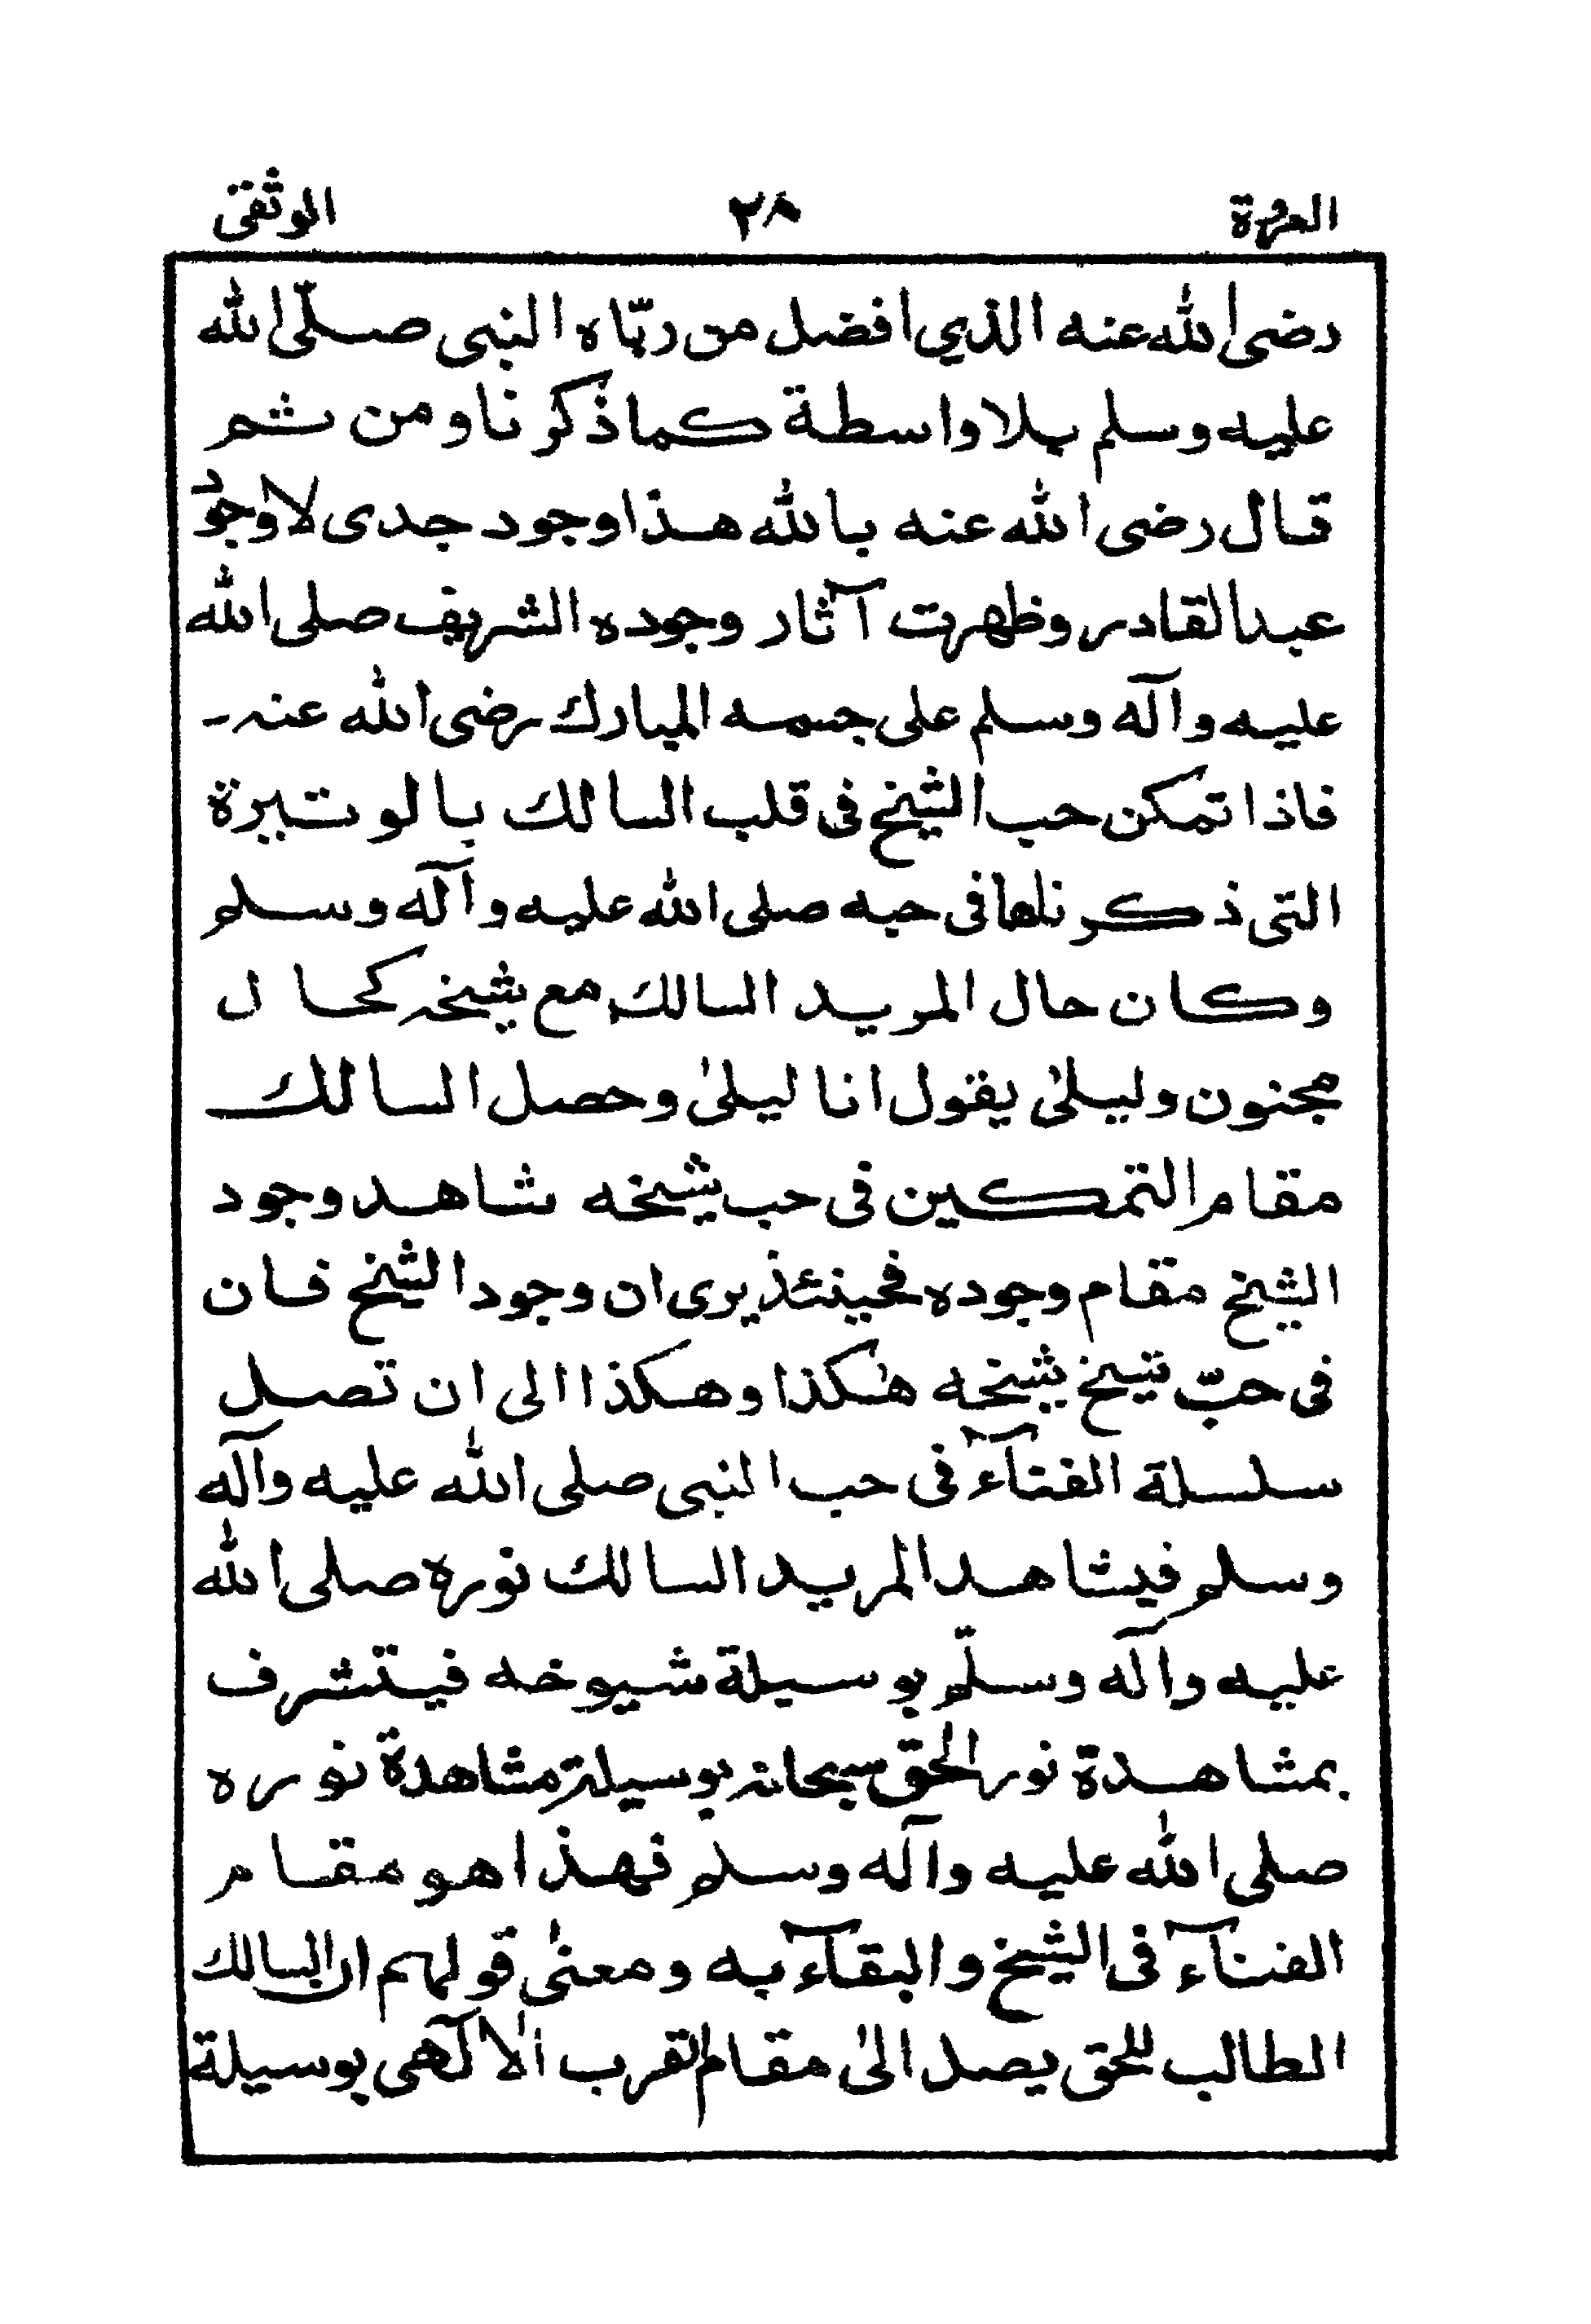 العروة ٢٨ الوثقى
رضى الله عنه الذي افضل من ربّاه النبى صلّى الله
عليه وسلم بلا واسطة كما ذكرنا ومن ثم
قال رضى الله عنه بالله هذا وجود جدى لا وجود
عبد القادر وظهرت آثار وجوده الشريف صلى الله
عليه وآله وسلم على جسمه المبارك رضى الله عنه -
فاذا تمكن حب الشيخ فى قلب السالك بالوتيرة
التى ذكرناها فى حبه صلى الله عليه وآله وسلم
وكان حال المريد السالك مع شيخه كحال
مجنون وليلىٰ يقول انا ليلىٰ وحصل السالك
مقام التمكين فى حب شيخه شاهد وجود
الشيخ مقام وجوده فحينئذ يرى ان وجود الشيخ فان
فى حبّ شيخ شيخه هٰكذا وهكذا الى ان تصل
سلسلة الفنآء فى حب النبى صلى الله عليه وآله
وسلم فيشاهد المريد السالك نوره صلى الله
عليه وآله وسلّم بوسيلة شيوخه فيتشرف
بمشاهدة نور الحق سبحانه بوسيلة مشاهدة نوره
صلى الله عليه وآله وسلم فهذا هو مقام
الفنآء فى الشيخ والبقآء به ومعنىٰ قولهم ان السالك
الطالب للحق يصل الىٰ مقام القرب الالٓهى بوسيلة